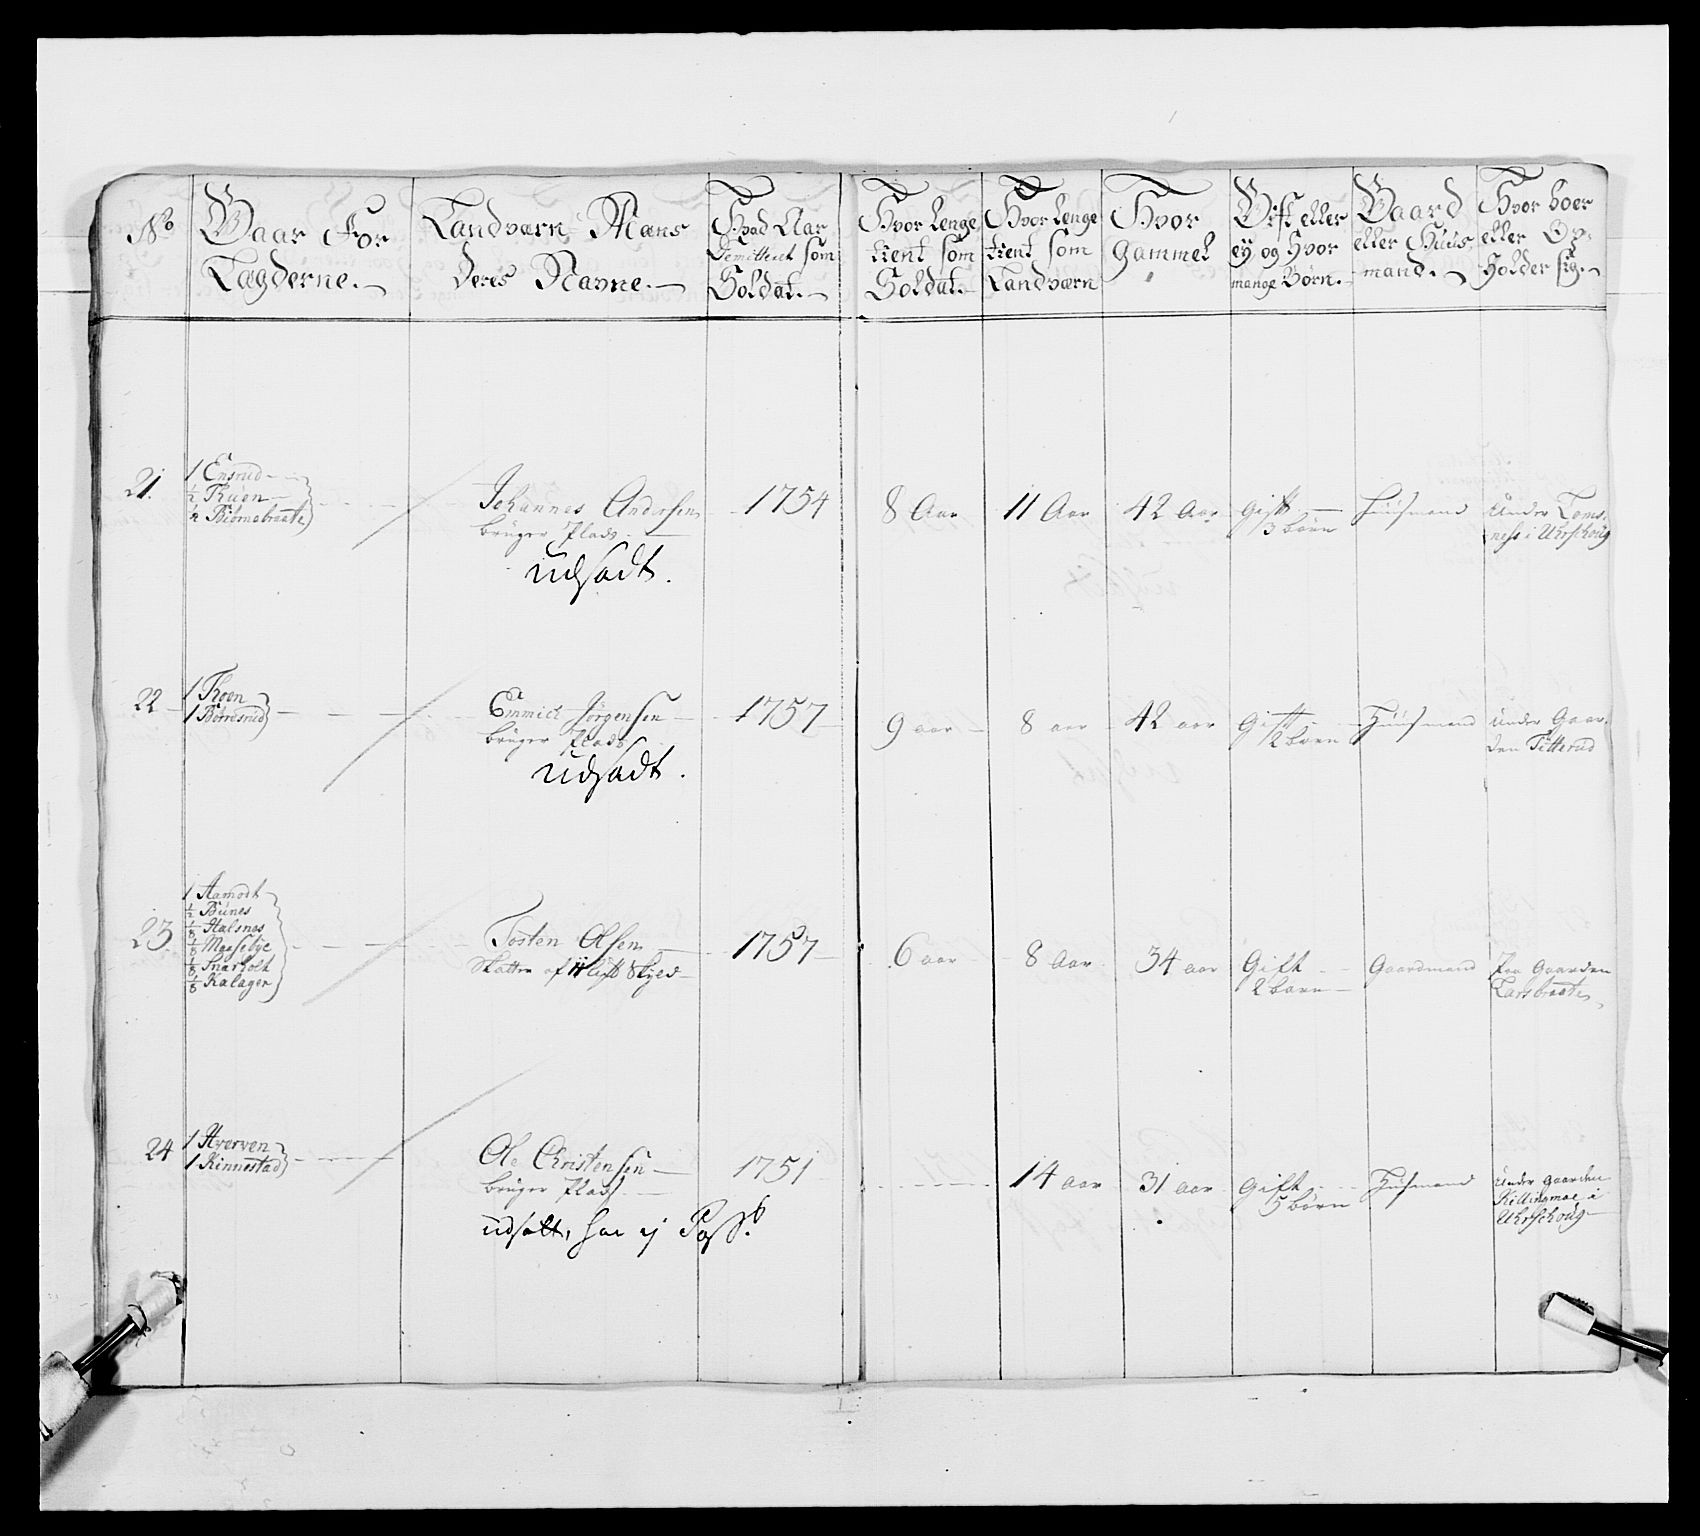 No
Gaar For
Lægderne.
Landværn Mæns
Deres Navne.
Hvad Aar
Demitteret som
Soldat.
Hvor Lenge
tient som
Soldat.
Hvor Lenge
tient som
Landværn
Hvor
Gammel
Gift eller
ey og Hvor
mange Børn.
Gaard
eller Huus
mand.
Hvor boer
eller Op-
Holder sig.
21.
1 Ensrud
½ Thuen
½ Biørnebraate
Johannes Andersen
bruger Plads
udsadt.
1754
8 Aar
11 Aar
42 Aar
Gift
3 børn
Huusmand
Under Toms-
ness i Uhrschoug
22
1 Thoen
1 Børresrud
Emmich Jørgensen
bruger Plads
Udsadt.
1757
9 aar
8 aar
42 aar
Gift
2 børn
Huusmand
Under Gaar-
den Titterud
23
1 Aamodt
½ Bunes
⅛ Halsnes
⅛ Maasebye
⅛ Snarholt
⅛ Kalager
Tosten Olsen
Skatter af Skyld
1757
6 aar
8 Aar
34 aar
Gift
2 børn
Gaardmand
Paa Gaarden
Larsbraaten
24
1 Hverven
1 Kinnestad
Ole Christensen
bruger Plads
udsatt, har ej Pass.
1751
14 aar
31 aar
Gift
5 børn
Husmand
Under gaarden
Killingmoe i
Uhrschoug